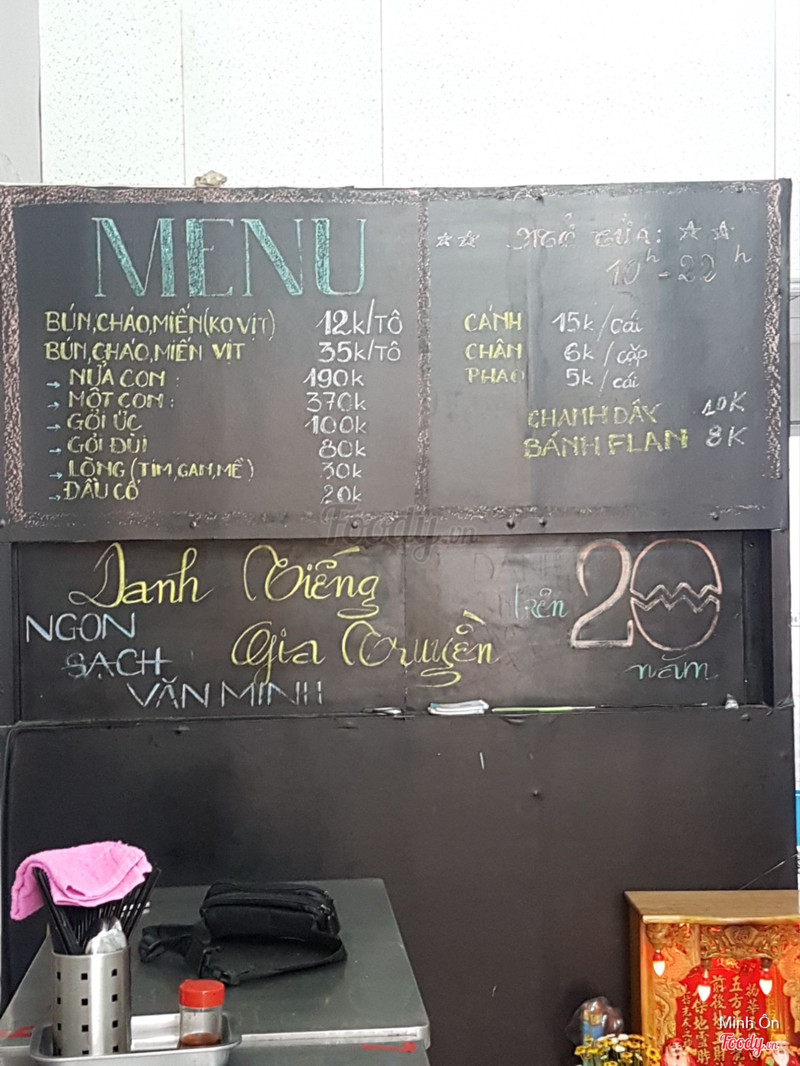 MENU
BÚN,CHÁO,MIẾN(KO VỊT) 12k/TÔ
BÚN,CHÁO,MIẾN VỊT 35k/TÔ
→ NỬA CON : 190k
→ MỘT CON : 370k
→ GỎI ỨC 100k
→ GỎI ĐÙI 80k
→ LÒNG (TIM,GAN,MỀ) 30k
→ ĐẦU CỔ 20k
MỞ CỬA:
10h - 22h
CÁNH 15k/cái
CHÂN 6k/cặp
PHAO 5k/cái
CHANH DÂY 10K
BÁNH FLAN 8K
Danh Tiếng
Gia Truyền
NGON
SẠCH
VĂN MINH
Trên 20
năm
Foody.vn
五方
前後地
Minh Ôn
Foody.vn